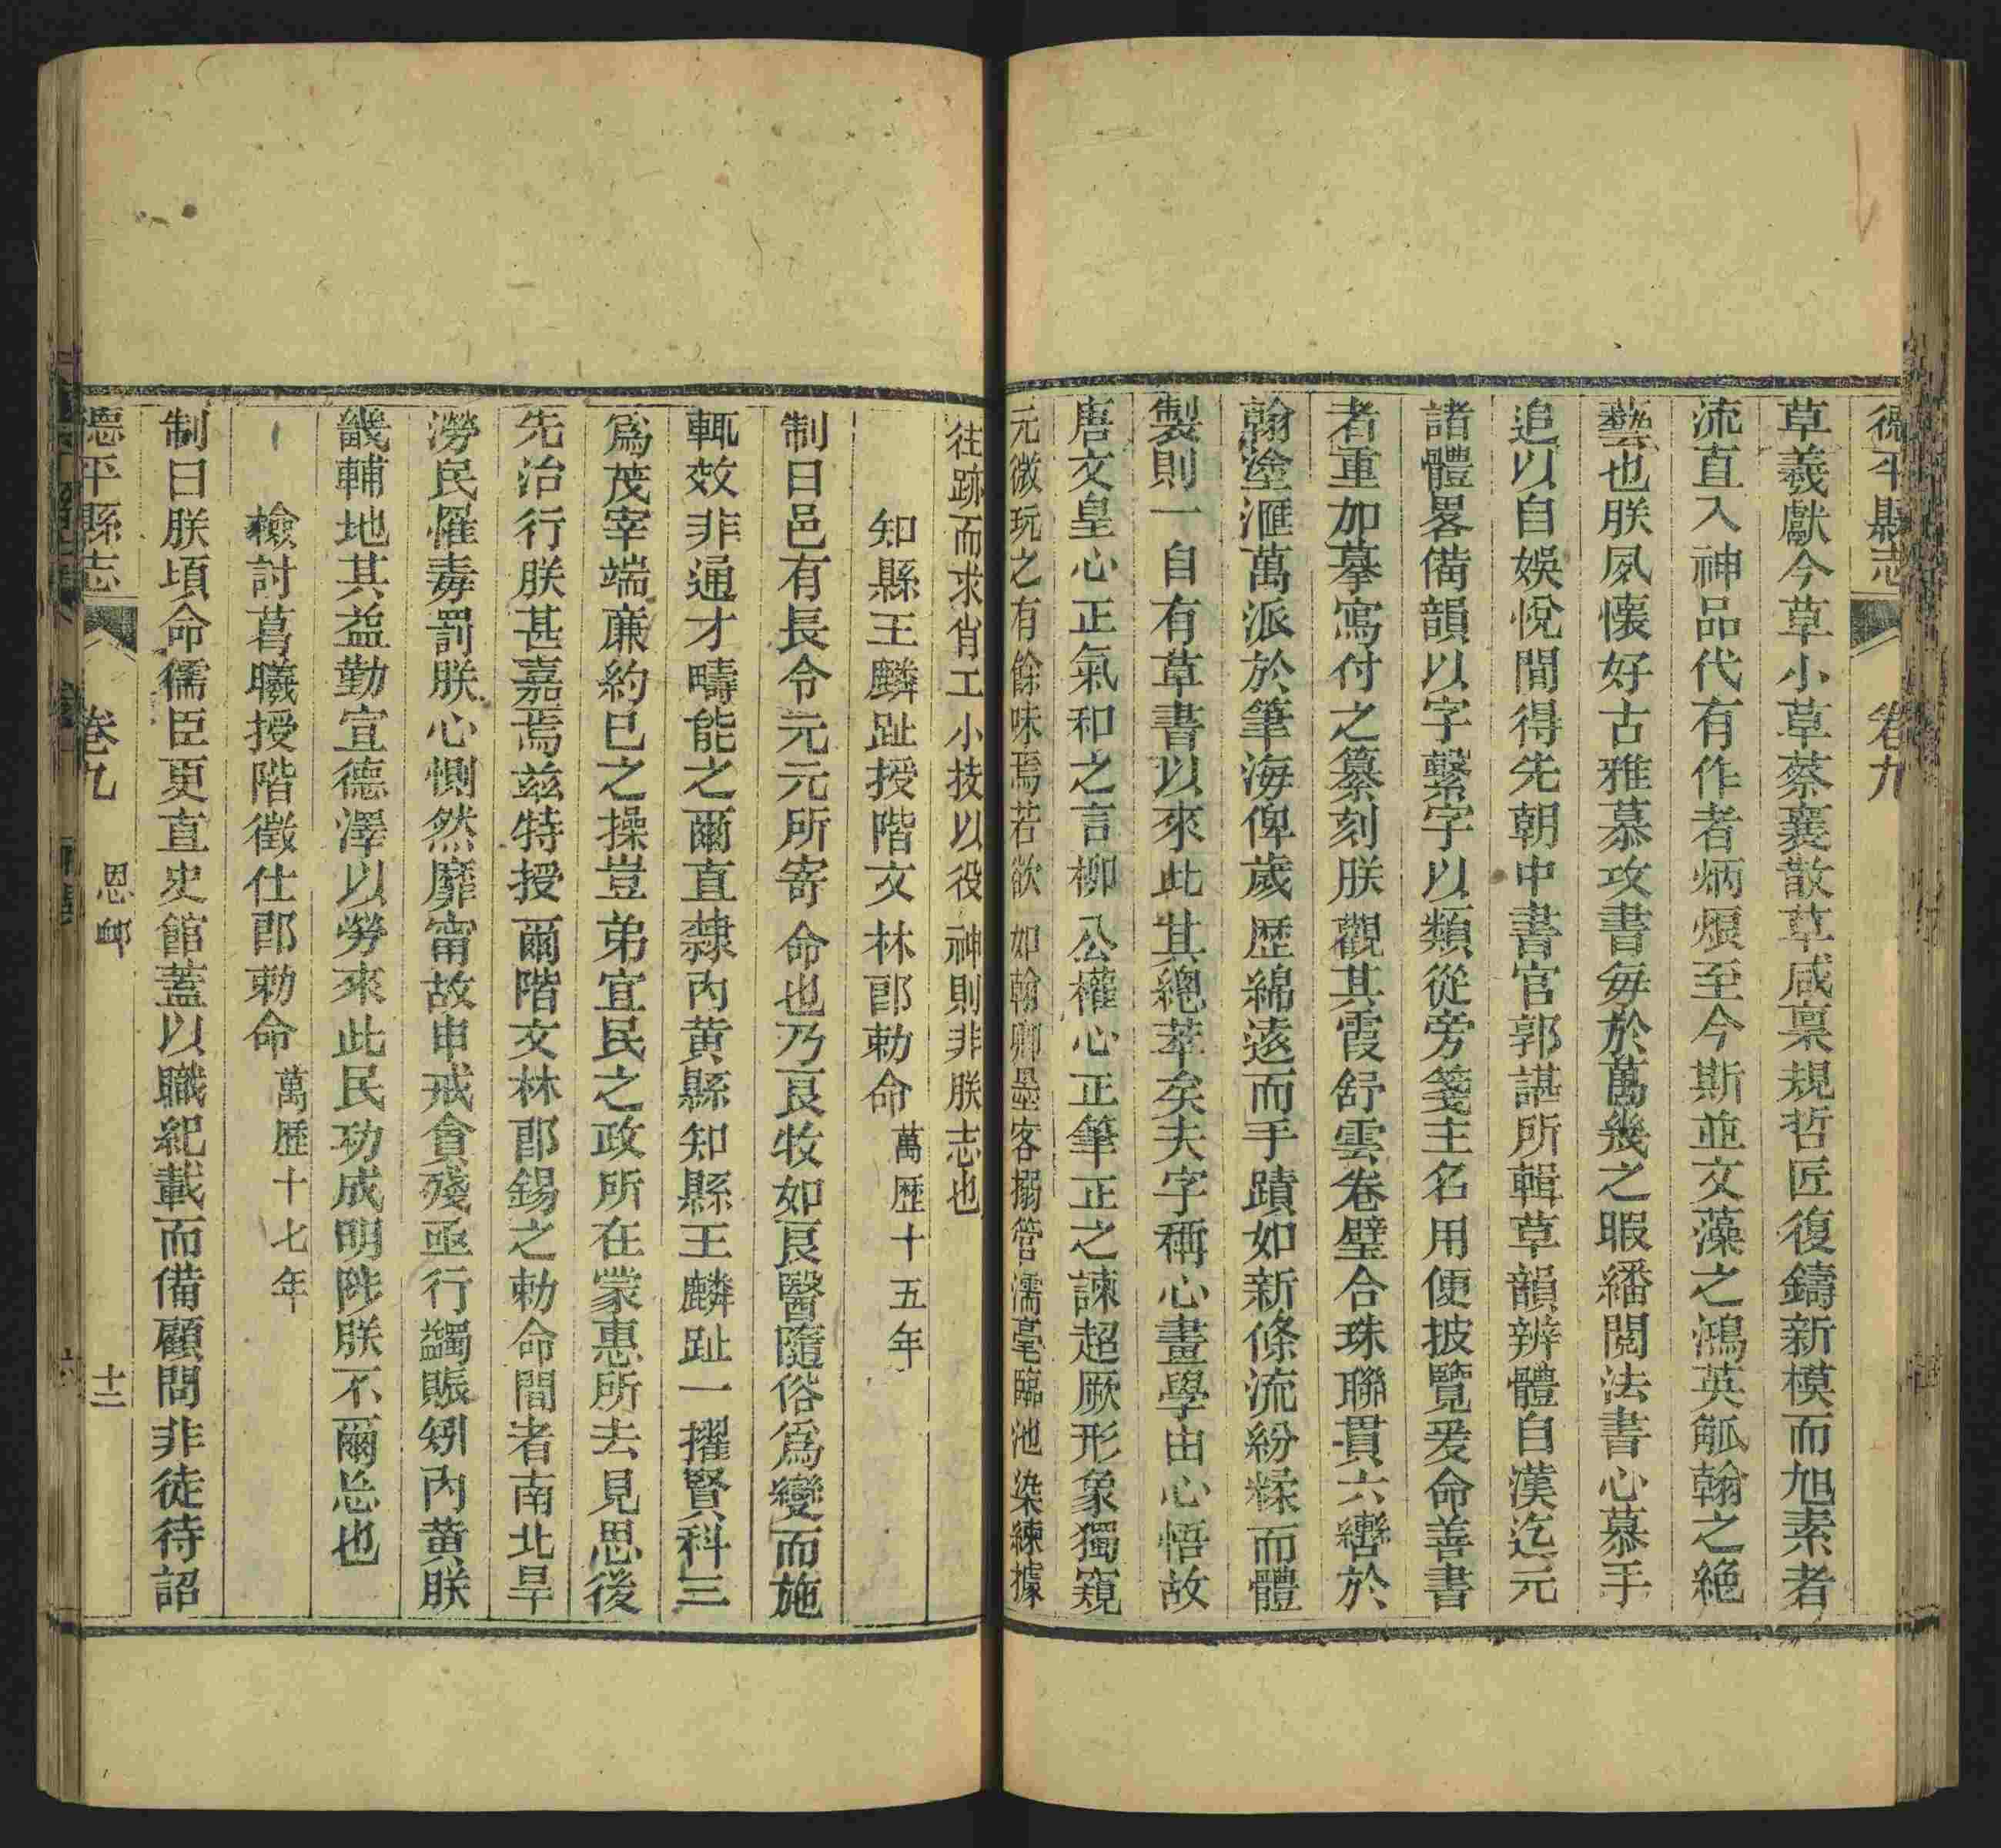 德平縣志 卷九
草羲獻今草小草蔡襄散草咸稟規哲匠復鑄新模而旭素者
流直入神品代有作者炳煩至今斯並文藻之鴻英觚翰之絶
藝也朕夙懷好古雅慕攻書每於萬幾之暇繙閱法書心慕手
追以自娛悅間得先朝中書官郭諶所輯草韻辨體自漢迄元
諸體畧備韻以字繫字以類從旁箋主名用便披覽爰命善書
者重加摹寫付之纂刻朕觀其霞舒雲卷璧合珠聯貫六轡於
翰塗滙萬派於筆海俾歲歷綿遠而手蹟如新條流紛糅而體
製則一自有草書以來此其總萃矣夫字稱心畫學由心悟故
唐文皇心正氣和之言柳公權心正筆正之諫超厥形象獨窺
元微玩之有餘味焉若欲如翰卿墨客搦管濡毫臨池染練據
往跡而求肖工小技以役神則非朕志也
知縣王麟趾授階文林郎勅命 萬歷十五年
制曰邑有長令元元所寄命也乃良牧如良醫隨俗爲變而施
輒效非通才疇能之爾直隸內黃縣知縣王麟趾一擢賢科三
爲茂宰端廉約已之操豈弟宜民之政所在蒙惠所去見思後
先治行朕甚嘉焉兹特授爾階文林郎錫之勅命間者南北旱
澇民罹毒罰朕心惻然靡甯故申戒貪殘亟行蠲賑矧內黃朕
畿輔地其益勤宣德澤以勞來此民功成明陟朕不爾忘也
檢討葛曦授階徵仕郎勅命 萬歷十七年
制曰朕頃命儒臣更直史館蓋以職紀載而備顧問非徒待詔
德平縣志 卷九 恩卹 十二